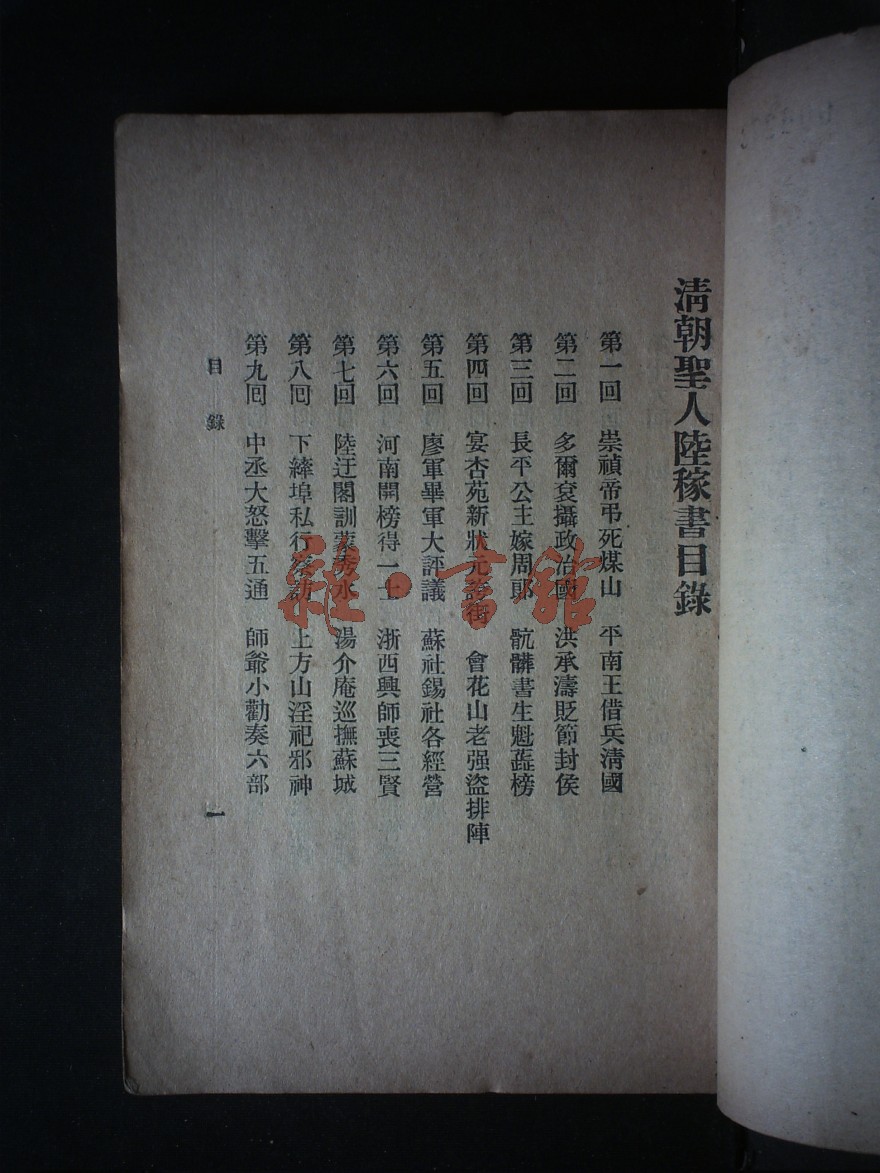 清朝聖人陸稼書目錄
第一回 崇禎帝弔死煤山 平南王借兵清國
第二回 多爾袞攝政治國 洪承濤貶節封侯
第三回 長平公主嫁周郎 骯髒書生魁蕋榜
第四回 宴杏苑新狀元誇街 會花山老强盜排陣
第五回 廖軍畢軍大評議 蘇社錫社各經營
第六回 河南開榜得一士 浙西興師喪三賢
第七回 陸迂閣訓蒙秀水 湯介庵巡撫蘇城
第八回 下縴埠私行察訪 上方山淫祀邪神
第九回 中丞大怒擊五通 師爺小勸奏六部
目錄
一
雜·書館